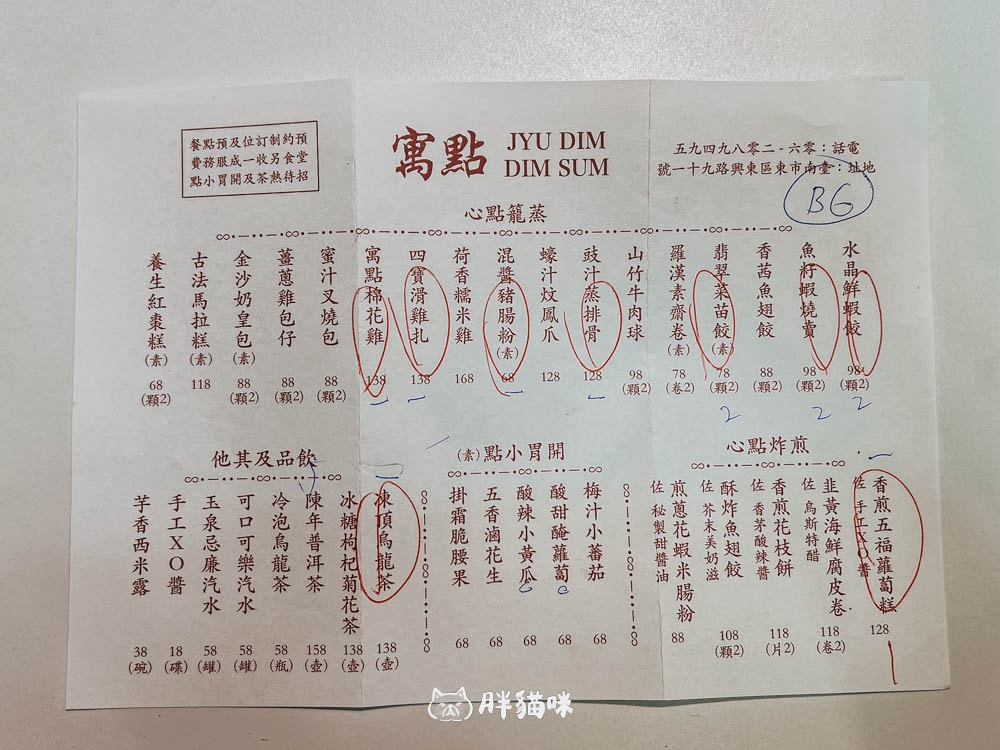 預約制訂位及預點餐
堂食另收一成服務費
招待熱茶及開胃小點
寓點
JYU DIM
DIM SUM
電話：零六 - 二〇八九四九五
地址：臺南市東區東興路九十一號
B6
蒸籠點心
水晶鮮蝦餃 98 (2顆) 2
魚籽蝦燒賣 98 (2顆) 2
香茜魚翅餃 88 (2顆)
翡翠菜苗餃(素) 78 (2顆) 2
羅漢素齋卷(素) 78 (2卷)
山竹牛肉球 98 (2顆)
豉汁蒸排骨 128
蠔汁炆鳳爪 128
混醬豬腸粉(素) 68
荷香糯米雞 168
四寶滑雞扎 138
寓點棉花雞 138
蜜汁叉燒包 88 (2顆)
薑蔥雞包仔 88 (2顆)
金沙奶皇包(素) 88 (2顆)
古法馬拉糕(素) 118
養生紅棗糕(素) 68 (2顆)
煎炸點心
香煎五福蘿蔔糕 佐 手工XO醬 128
韭黃海鮮腐皮卷 佐 烏斯特醋 118 (2卷)
香煎花枝餅 佐 香茅酸辣醬 118 (2片)
酥炸魚翅餃 佐 芥末美奶滋 108 (2顆)
煎蔥花蝦米腸粉 佐 秘製甜醬油 88
開胃小點(素)
梅汁小蕃茄 68
酸甜醃蘿蔔 68
酸辣小黃瓜 68
五香滷花生 68
掛霜脆腰果 68
飲品及其他
凍頂烏龍茶 138 (壺)
冰糖枸杞菊花茶 138 (壺)
陳年普洱茶 158 (壺)
冷泡烏龍茶 58 (瓶)
可口可樂汽水 58 (罐)
玉泉忌廉汽水 58 (罐)
手工XO醬 18 (碟)
芋香西米露 38 (碗)
胖貓咪